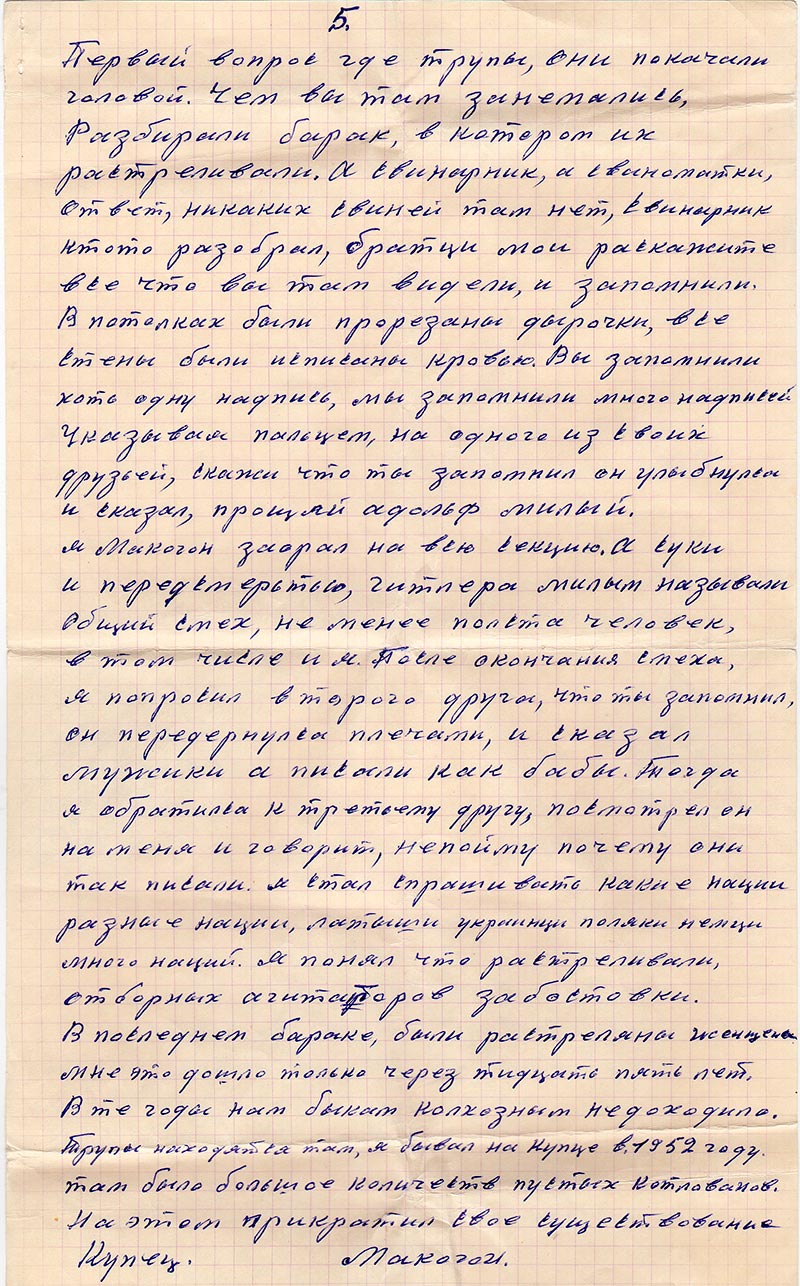 5.
Первый вопрос где трупы, они покачали
головой. Чем вы там занемались,
Разбирали барак, в котором их
растреливали. А свинарник, а свиноматки,
ответ, никаких свиней там нет, свинарник
ктото разобрал, братци мои раскажите
все что вы там видели, и запомнили.
В потолках были прорезаны дырочки, все
стены были исписаны кровью. Вы запомнили
хоть одну надпись, мы запомнили много надписей
Указывая пальцем, на одного из своих
друзьей, скажи что ты запомнил он улыбнулса
и сказал, прощяй адольф милый.
я Макогон заорал на всю секцию. А суки
и передсмерьтью, гитлера милым называли
Общий смех, не менее полста человек,
в том числе и я. После окончания смеха,
я попросил второго друга, что ты запомнил,
он передернулса плечами, и сказал
мужики а писали как бабы. Тогда
я обратилса к третьему другу, посмотрел он
на меня и говорит, непойму почему они
так писали. я стал спрашивать какие нации
разные нации, латыши украинци поляки немци
много наций. Я понял что растреливали,
отборных агитаторов забостовки.
В последнем бараке, были растреляны женщены
мне это дошло только через тидцать пять лет.
В те годы нам быкам колхозным недоходило.
Трупы находятся там, я бывал на Купце в.1952 году.
там было большое количеств пустых котлованов.
На этом прикратил свое существование
Купец. Макогон.